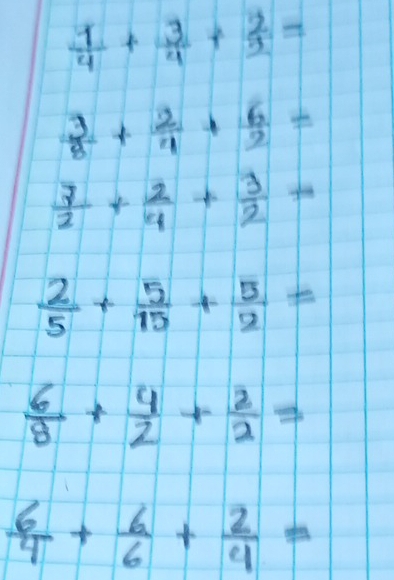 1/4 + 3/4 + 2/2 =
3/8 + 2/4 + 6/2 =
3/2 + 2/4 + 3/2 =
2/5 + 5/15 + 5/2 =
6/8 + 4/2 + 2/2 =
6/4 + 6/6 + 2/4 =